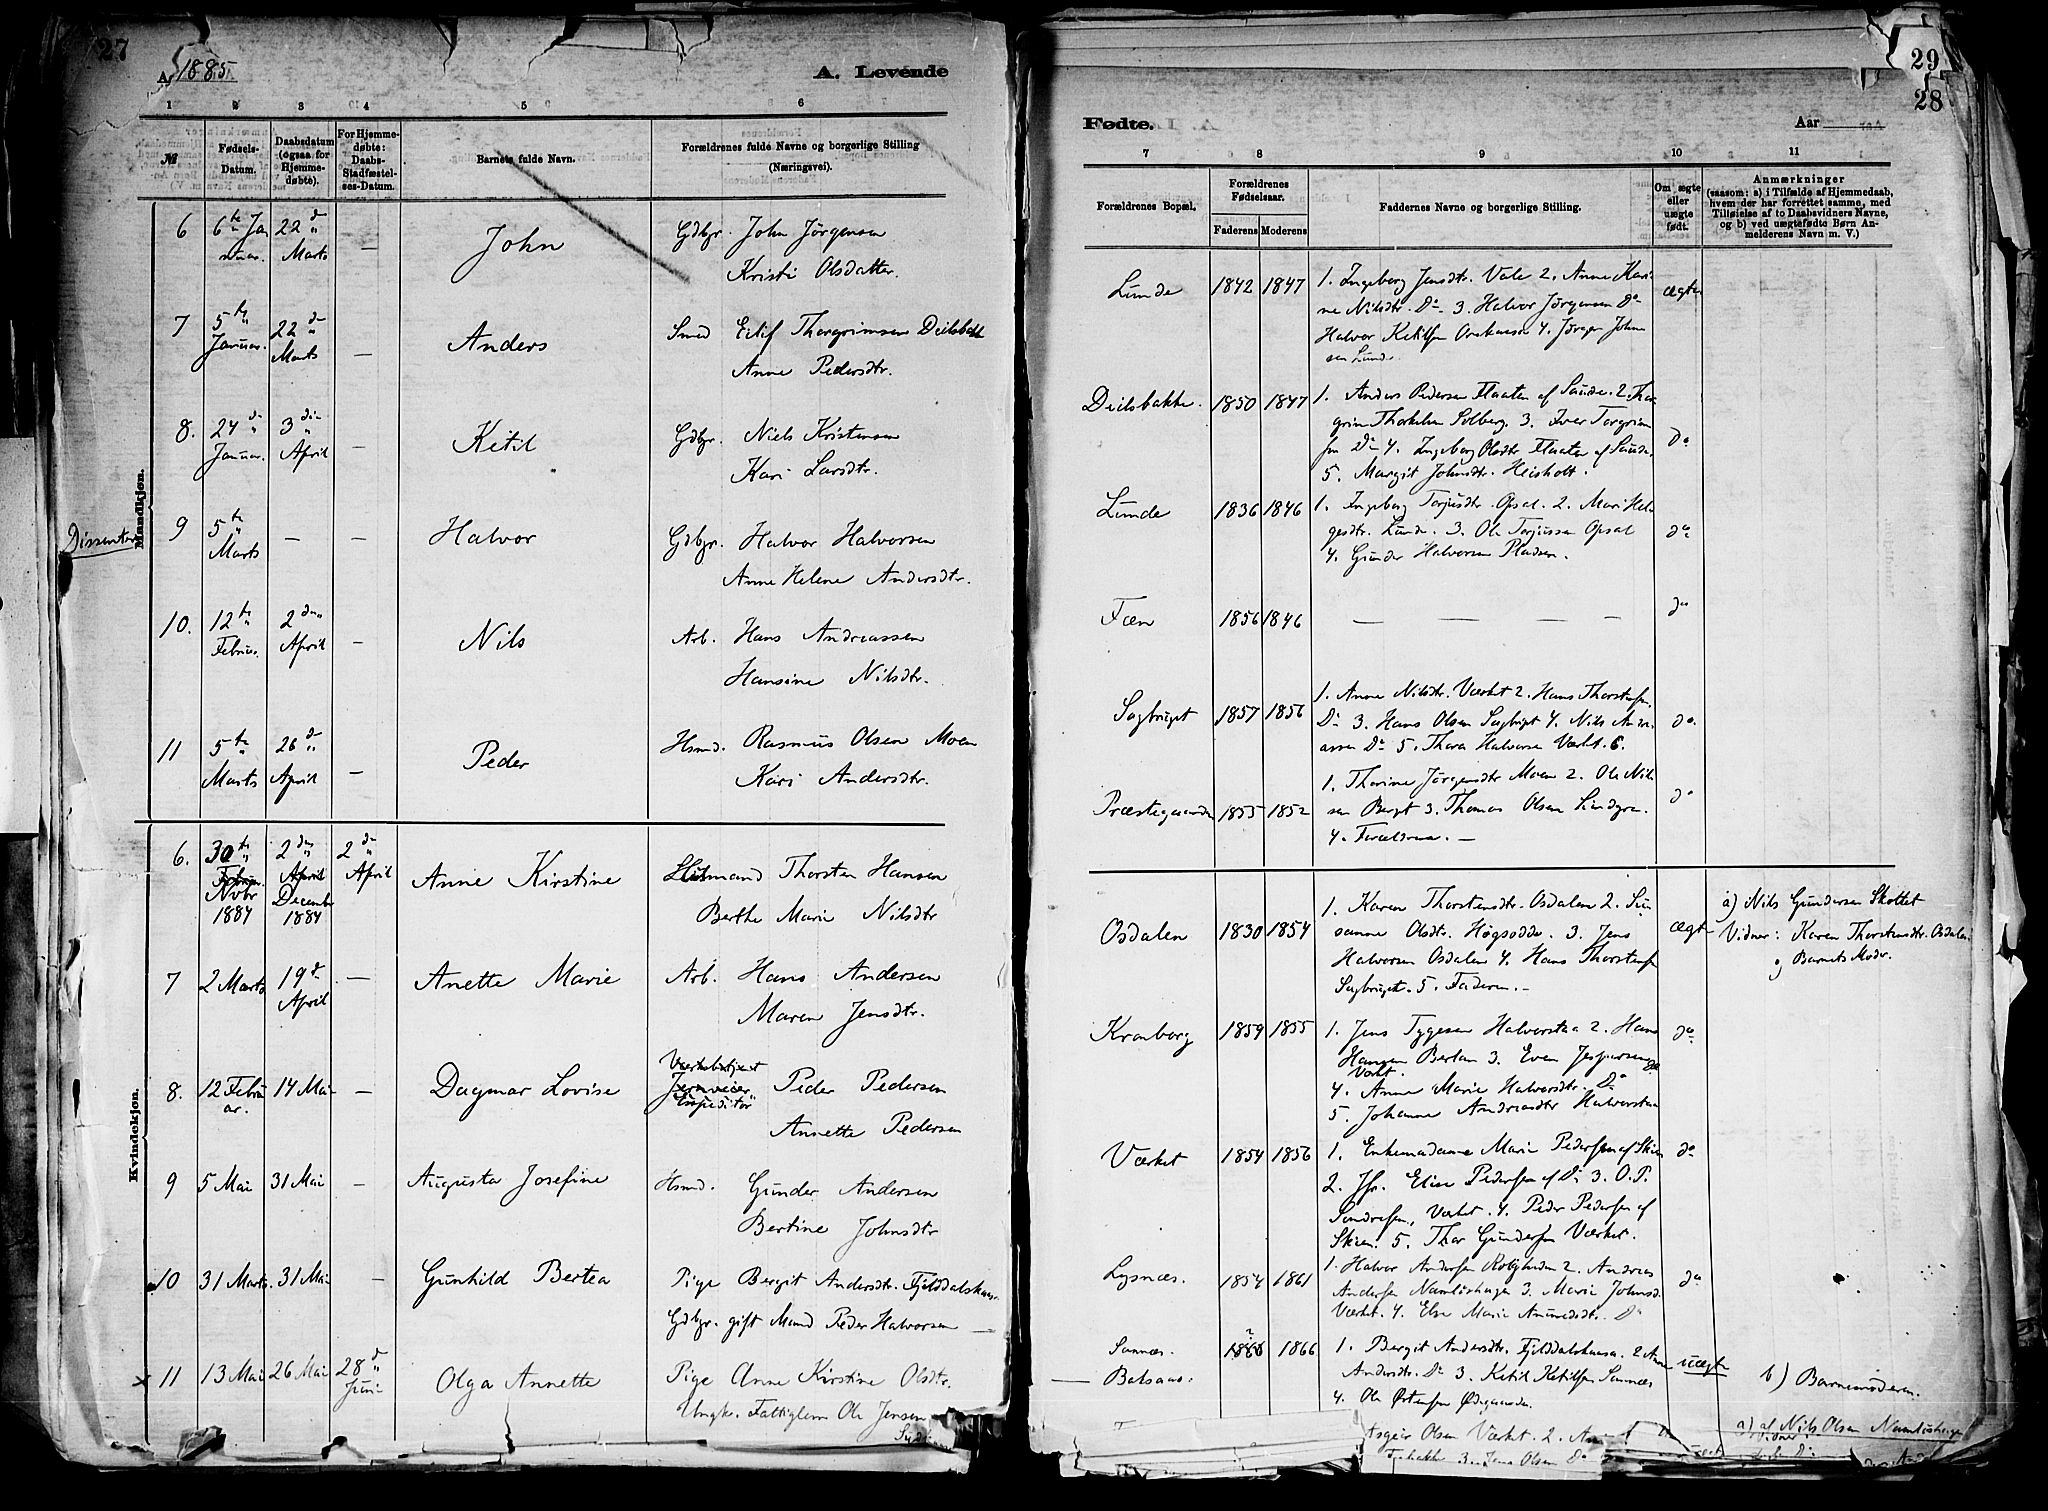 27
A. 1885.
A. Levende
1 2 3 4 5 6
№
Fødsels-Datum.
Daabsdatum (ogsaa for Hjemme-døbte).
For Hjemme-døbte: Daabs-Stadfæstel-ses-Datum.
Barnets fulde Navn.
Forældrenes fulde Navne og borgerlige Stilling (Næringsvei).
Mandkjøn.
6 6te Ja 22d — John Gdbgr. John Jörgensen
nuar. Marts Kristi Olsdatter.
7 5te 22d — Anders Smed Eilif Thorgrimsen Deilsbakk
Januar. Marts Anne Pedersdtr.
8. 24d 3die — Ketil Gdbgr. Niels Kristensen
Januar. April Kari Larsdtr.
Dissenter
9 5te — — Halvor Gdbgr. Halvor Halvorsen
Marts Anne Helene Andersdtr.
10. 12te 2den — Nils Arb. Hans Andreassen
Februar. April Hansine Nilsdtr.
11 5te 26d — Peder Hsmd. Rasmus Olsen Moen
Marts April Kari Andersdtr.
Kvindekjøn.
6. 30te 2den 2d Anne Kirstine Thorsten Hansen
April April
Nvbr December Berthe Marie Nilsdtr
1884 1884
7 2 Marts 19d. — Anette Marie Arb. Hans Andersen
April Maren Jensdtr.
8. 12 Febru 14 Mai — Dagmar Lovise Peder Pedersen
ar. Annette Pedersen
9 5 Mai 31 Mai — Augusta Josefine Hsmd. Gunder Andersen
Bertine Johnsdtr
10 31 Marts 31 Mai — Gunhild Bertea Pige Bergit Andersdtr. Fjelddalshaug
Gdbgr. gift Mand Peder Halvorsen —
x 11 13 Mai 26 Mai 28d Olga Annette Pige Anne Kirstine Olsdtr.
Juni Ungk. Fattiglem Ole Jensen
29
28
Fødte.
Aar
7 8 9 10 11
Forældrenes Bopæl.
Forældrenes Fødselsaar.
Faderens Moderens
Faddernes Navne og borgerlige Stilling.
Om ægte eller uægte født.
Anmærkninger
(saasom: a) i Tilfælde af Hjemmedaab, hvem der har forrettet samme, med Tilføielse af to Daabsvidners Navne, og b) ved uægtefødte Børn Anmelderens Navn m. V.)
Lunde 1842 1847 1. Ingeborg Jensdtr. Vale 2. Anne Kari- ægte
ne Nilsdtr. Do 3. Halvor Jörgensen Do
Halvor Ketilsen 4. Jörgen John
sen Lunde
Deilsbakke. 1850 1847 1. Anders Pedersen Flaaten af Saude. 2. Thor
grim Thorkelsen Solberg. 3. Iver Torgrim
sen Do 4. Ingeborg Olsdtr Flaaten af Saude. do
5. Margit Johnsdtr. Heisholt.
Lunde 1836 1846 1. Ingeborg Torjusdtr. Opsal. 2. Mari Hel-
gesdtr. Lunde. 3. Ole Torjussen Opsal do
4. Gunder Halvorsen Pladsen.
Fæn 1856 1846 — — — — do
Sagbruget 1857 1856 1. Anne Nilsdtr. Værket 2. Hans Thorstensen
Do 3. Hans Olsen Sagbruget 4. Nils Andre- do
assen Do 5. Thora Halvorsen Værket. 6.
Præstegaarden 1855 1852 1. Thorine Jörgensdtr Moen 2. Ole Nil
sen Berget 3. Thomas Olsen do
4. Forældrene. —
Osdalen 1830 1854 1. Karen Thorstensdtr. Osdalen 2. Su ægte a) Nils Gundersen Skottet
sanne Olsdtr. Högsodde. 3. Jens Vidner: Karen Thorstensdtr. Osdalen
Halvorsen Osdalen 4. Hans Thorstensen og Barnets Moder.
Sagbruget. 5. Faderen. —
Kronborg 1859 1855 1. Jens Tygesen Halvorstaa 2. Hans do
Hansen 3. Even Jespersen Do
Værket.
4. Anne Marie Halvorsdtr. Do
5. Johanne Andreasdtr Halvorstaa
Værket 1854 1856 1. Enkemadame Marie Pedersen af Skien do
2. Jfr. Elise Pedersen af Do 3. O. P.
Sondresen, Værket. 4. Peder Pedersen af
Skien. 5. Thor Gundersen Værket.
Lysnæs. 1854 1861 1. Halvor Andersen 2. Andreas do
Andersen Namløshagen 3. Marie Johnsd.
Værket. 4. Else Marie Do
Sannæs. 1866 1. Bergit Andersdtr. Fjelddalshaug. 2. Anne uægte
— Andersdtr. Do 3. Ketil Ketilsen Sannæs b) Barnemoderen.
4. Ole Östensen Ödegaarden
Asgeir Olsen Værket. 2. a) af Nils Olsen Namløshagen
3. Jens Olsen Do Vidner